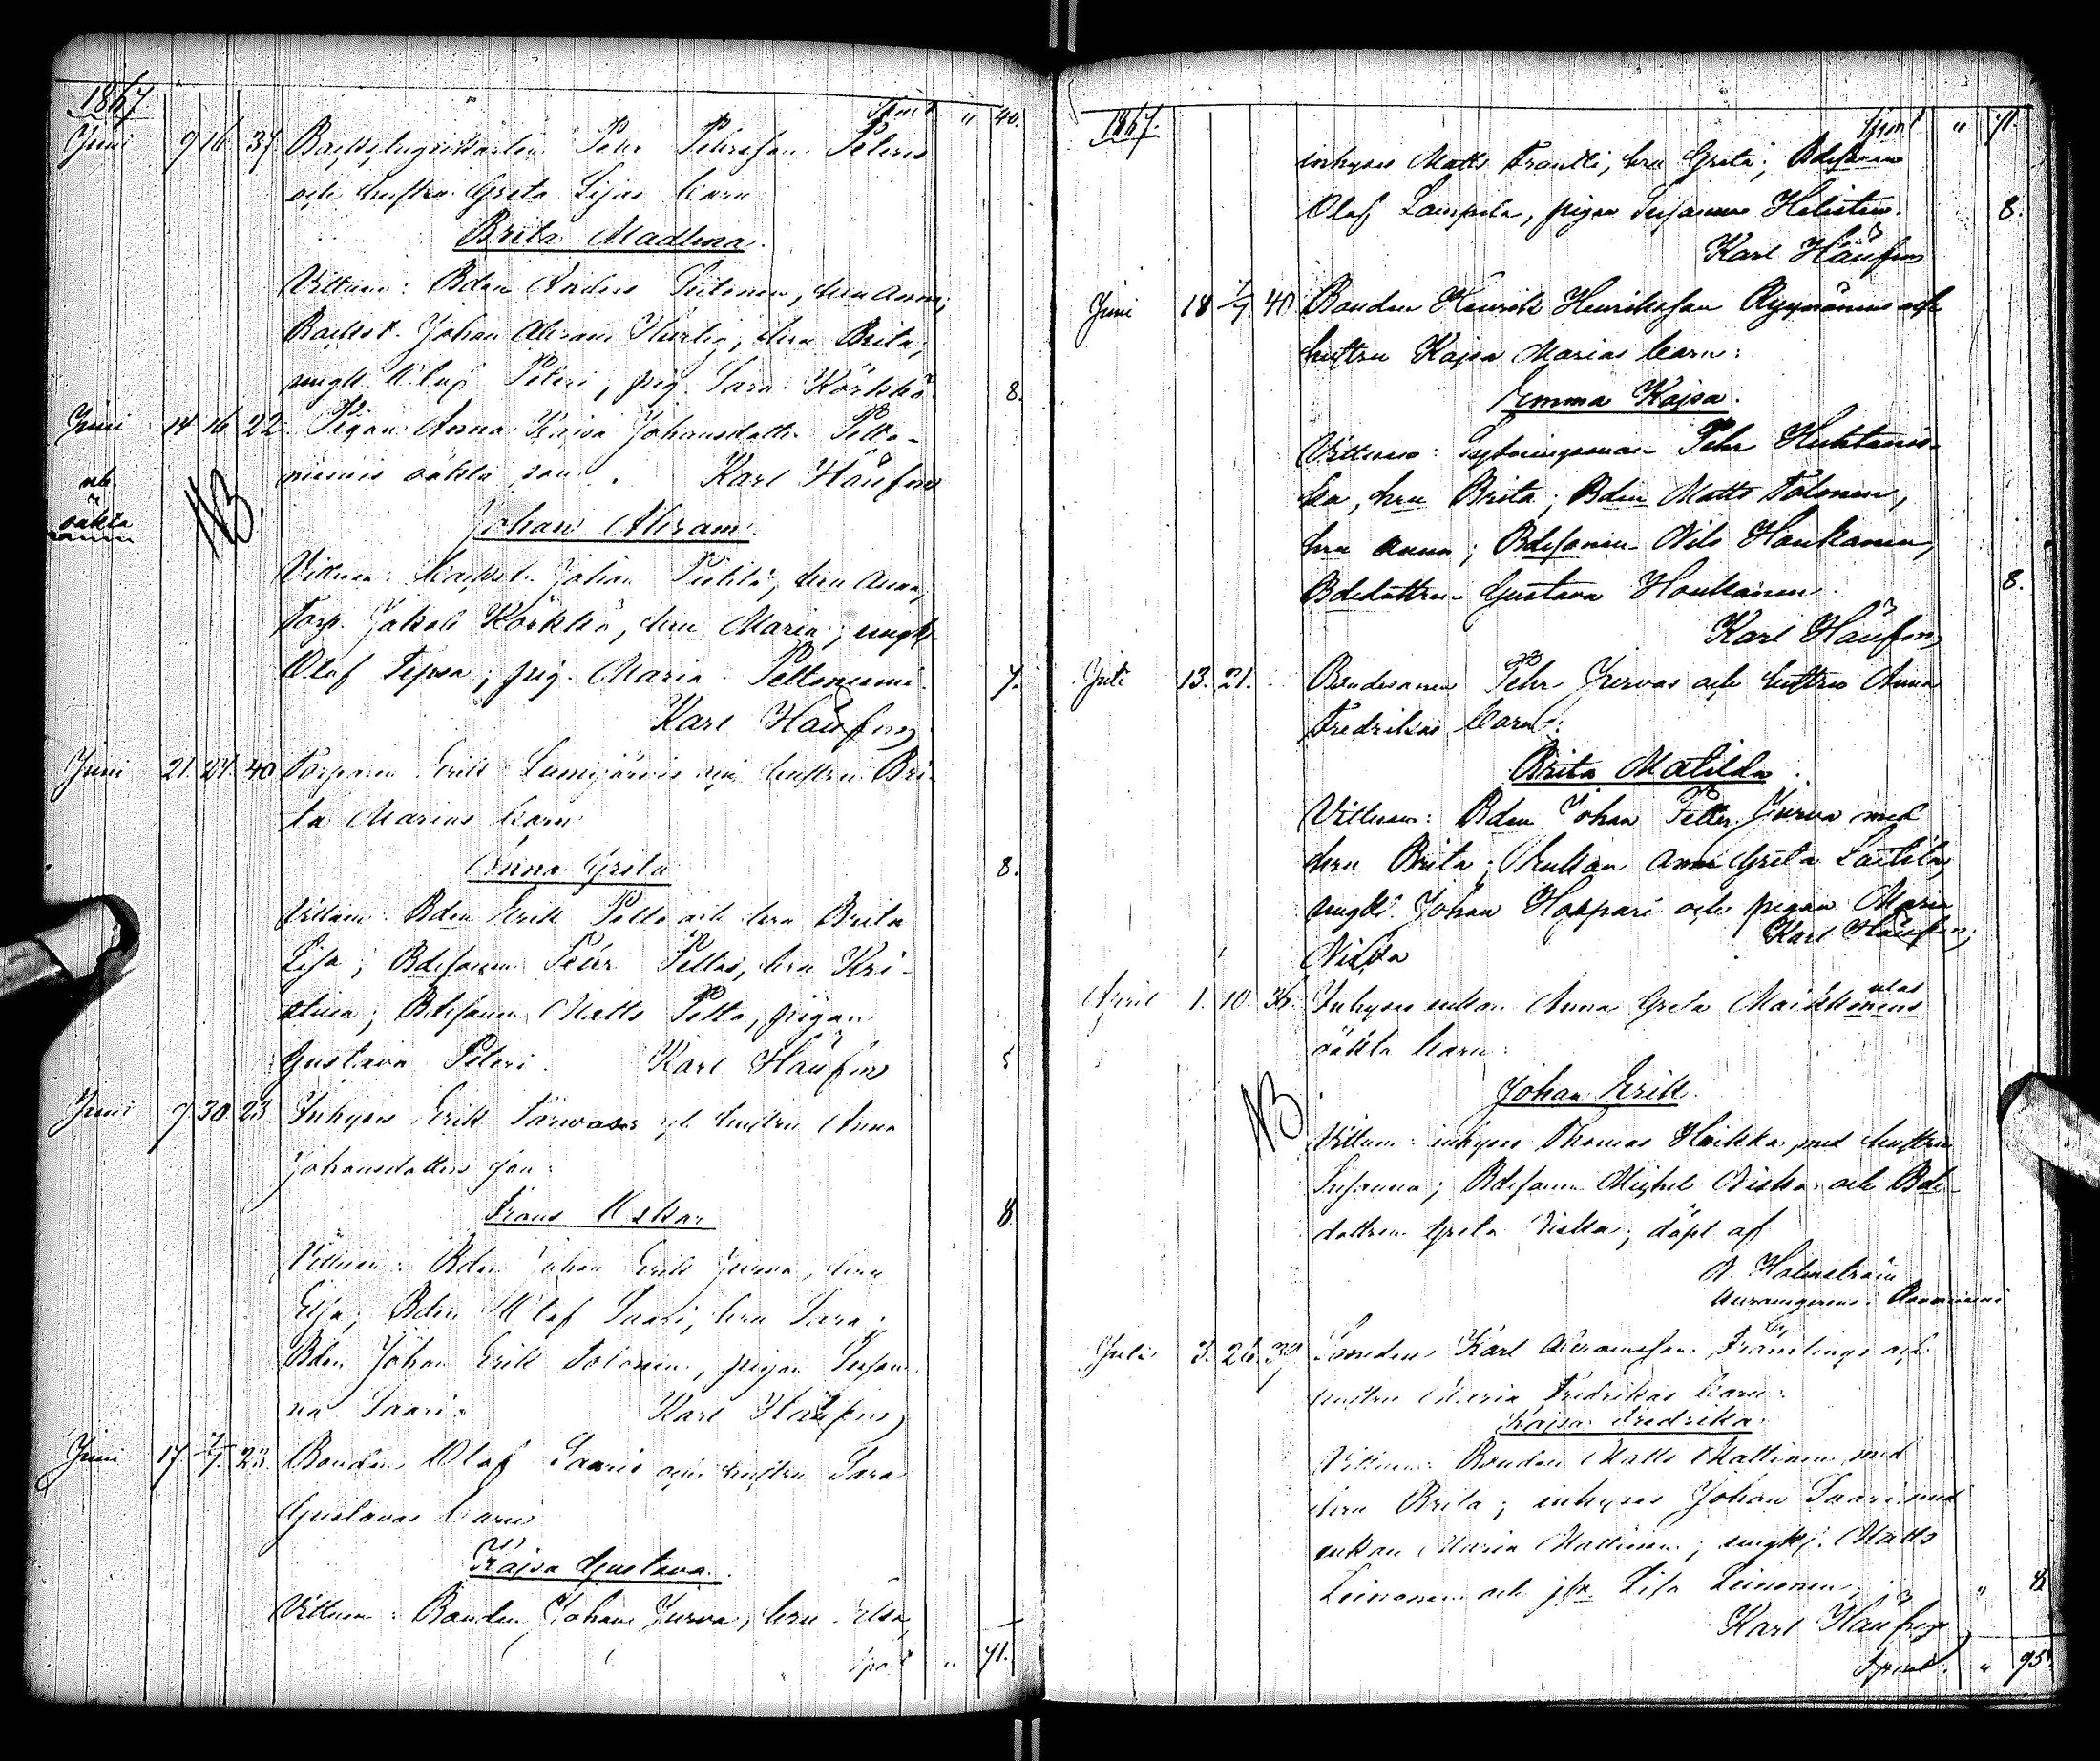 1867
Spint " 40.
Juni 9 16 37 Backstugusittaren Pehr Pehrsson Peteris
och hustru Greta Lisas barn
Brita Madlena.
Vittnen: Bden Anders Pietinen, hru Anna;
Backst. Johan Abram Hurtig, hru Brita;
yngl. Olaf Peteri, pig. Sara Körkkö. 8.
Juni 14 16 22 Pigan Anna Kaisa Johansdotter Pelto-
niemis oäkta son. Karl Häufen
NB.
oäkta
Johan Abram.
Vittnen: Backst. Johan Pietilä, hru Anna,
Torp. Jakob Körkkö, hru Maria; yngl.
Olaf Tepsa; pig. Maria Peltoniemi. 7.
Karl Häufen
Juni 21. 24. 40 Torparen Erik Lumijärvis och hustru Bri-
ta Marias barn
Anna Greta 8.
Vittnen: Bden Erik Pelto och hru Brita
Lisa; Bdesonen Pehr Peltos, hru Kri-
stina; Bdesonen Matts Pelto, pigan
Gustava Peteri. Karl Häufen
Juni 7 30. 23. Inhyses Erik Tarvas och hustru Anna
Johansdotters son:
Frans Oskar 8
Vittnen: Bden Johan Erik Jurva, hru
Elsa; Bden Olaf Saari, hru Sara;
Bden Johan Erik Tolonen, pigan Susan
na Saari. Karl Häufen
Juni 17. 7/7. 23. Bonden Olaf Saaris och hustru Sara
Gustavas barn
Kajsa Gustava.
Vittnen: Bonden Johan Jurva, hru Elsa,
Spint " 71.
1867. Spint " 71.
inhyses Matts Frantti, hru Greta; Bdesonen
Olaf Lampela, pigan Susanna Helisten. 8.
Karl Häufen
Juni 18 7/7. 40 Bonden Henrik Henriksson Ryynänens och
hustru Kajsa Marias barn:
Emma Kajsa.
Vittnen: Sytningsman Pehr Huhtanis-
ka, hru Brita; Bden Matts Tolonen,
hru Anna; Bdesonen Nils Houkanen,
Bdedottren Gustava Houkanen. 8.
Karl Häufen
Juli 13. 21. Bondesonen Pehr Jurvas och hustru Anna
Fredrikas barn:
Brita Matilda.
Vittnen: Bden Johan Petter Jurva med
hru Brita; Enkan Anna Greta Laitila,
yngl. Johan Hoppari och pigan Maria
Niska Karl Häufen;
April 1. 10. 36. Inhyses enkan Anna Greta Maikkonens
oäkta barn:
NB
Johan Erik.
Vittnen: inhyses Thomas Heikka med hustru
Susanna; Bdesonen Michel Niska och Bde-
dottren Greta Niska; döpt af
A. Holmström
Juli 3. 26. 37 Smeden Karl Abramsson Främlings och
hustru Maria Fredrikas barn:
Kajsa Fredrika.
Vittnen: Bonden Matts Mattinen med
hru Brita; inhyses Johan Saari med
enkan Maria Mattinen; yngl. Matts
Leinonen och jfr Lisa Leinonen. " 8
Karl Häufen
Spint. " 95.